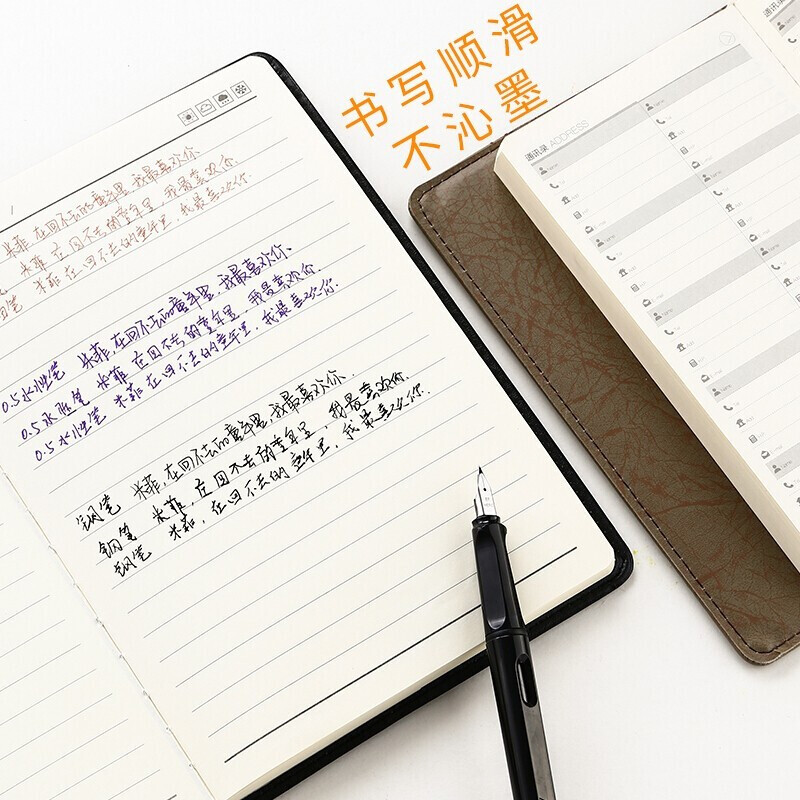 书写顺滑
不沁墨
米菲,在回不去的童年里,我最喜欢你.
米菲 在回不去的童年里,我最喜欢你.
钢笔 米菲 在回不去的童年里,我最喜欢你.
0.5水性笔 米菲,在回不去的童年里,我最喜欢你.
0.5水性笔 米菲 在回不去的童年里,我最喜欢你.
0.5水性笔 米菲 在回不去的童年里,我最喜欢你.
钢笔 米菲,在回不去的童年里,我最喜欢你.
钢笔 米菲,在回不去的童年里,我最喜欢你.
钢笔 米菲,在回不去的童年里,我最喜欢你.
通讯录 ADDRESS
通讯录